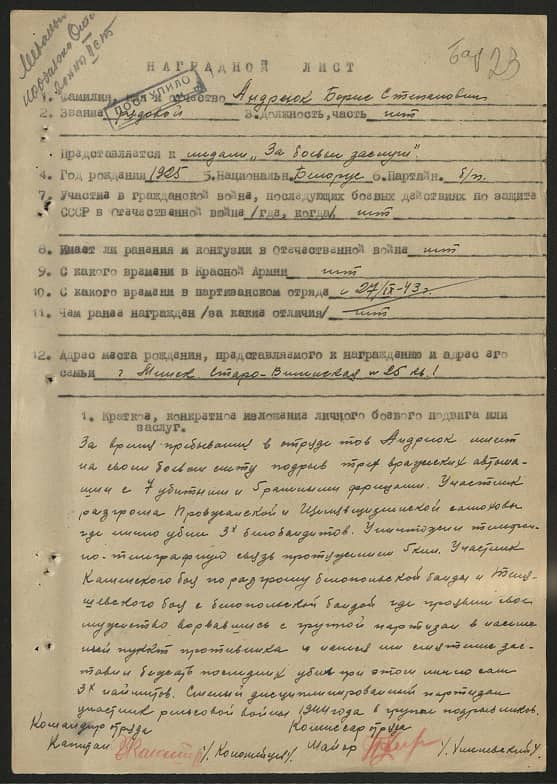 23
НАГРАДНОЙ ЛИСТ
ПОСТУПИЛО
1. Фамилия, имя и отчество Андреюк Борис Степанович
2. Звание рядовой 3. Должность, часть нет
Представляется к медали „За боевые заслуги".
4. Год рождения 1925 5. Национальн. Белорус 6. Партийн. б/п.
7. Участие в гражданской войне, последующих боевых действиях по защите
СССР в Отечественной войне /где, когда/ нет
8. Имеет ли ранения и контузии в Отечественной войне нет
9. С какого времени в Красной Армии нет
10. С какого времени в партизанском отряде с 27/IX-43 г.
11. Чем ранее награжден /за какие отличия/ нет
12. Адрес места рождения, представляемого к награждению и адрес его
семьи г. Минск Старо-Виленская № 25 кв. 1
1. Краткое, конкретное изложение личного боевого подвига или
заслуг.
За время пребывания в отряде тов Андреюк имеет
на своем боевом счету подрыв трех вражеских автома-
шин с 7 убитыми и 5 ранеными фрицами. Участник
разгрома и самоховы
где лично убил 3х белобандитов. Уничтожен телефон-
но-телеграфную связь протяжением 5 клм. Участник
Каменского боя по разгрому белопольской банды и
боя с белопольской бандой где проявил свое
мужество ворвавшись с группой партизан в населен-
ный пункт противника и нанеся им смятение зас-
тавил бежать последних убив при этом лично сам
3х Смелый дисциплинированный партизан
участник рельсовой войны 1944 года в группе подрывников.
Командир отряда Комиссар отряда
Капитан Майор